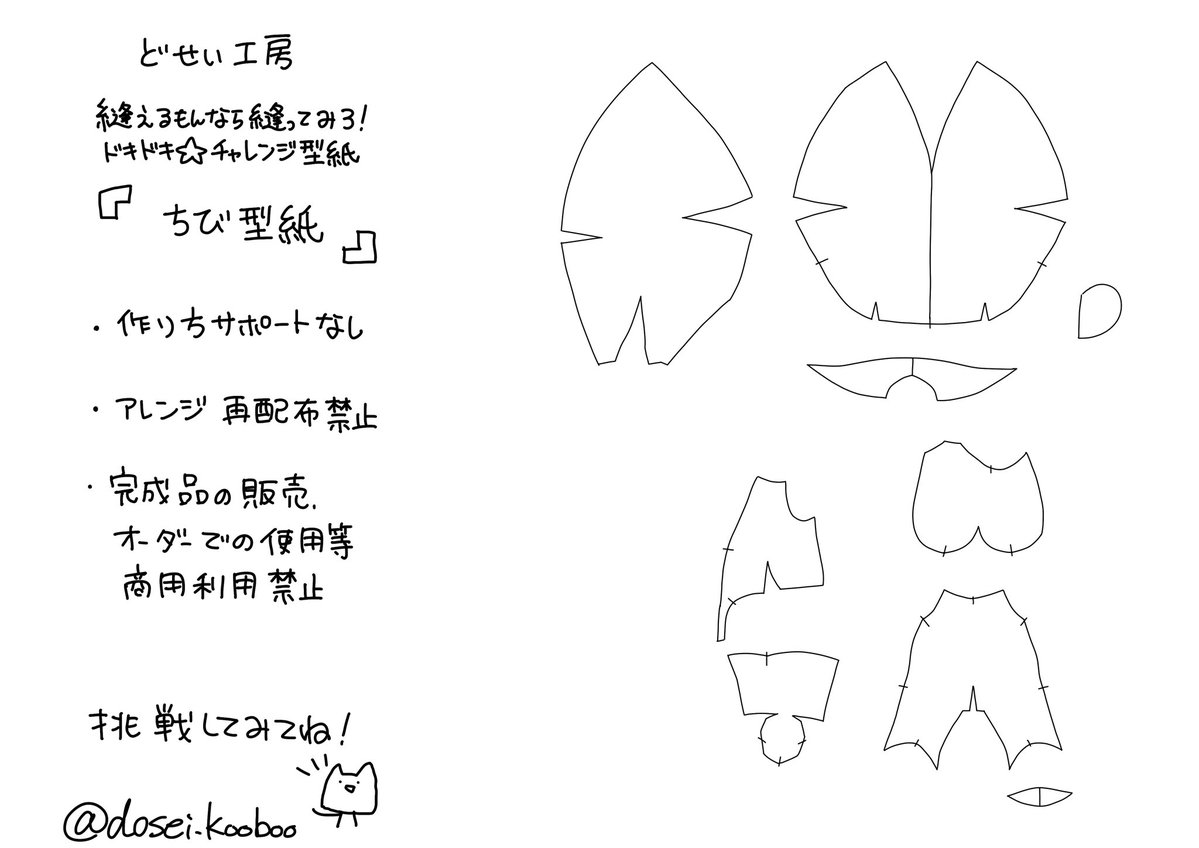 どせい工房
縫えるもんなら縫ってみろ!
ドキドキ☆チャレンジ型紙
『ちび型紙』
・作り方サポートなし
・アレンジ再配布禁止
・完成品の販売、
オーダーでの使用等
商用利用禁止
挑戦してみてね!
@dosei.kooboo